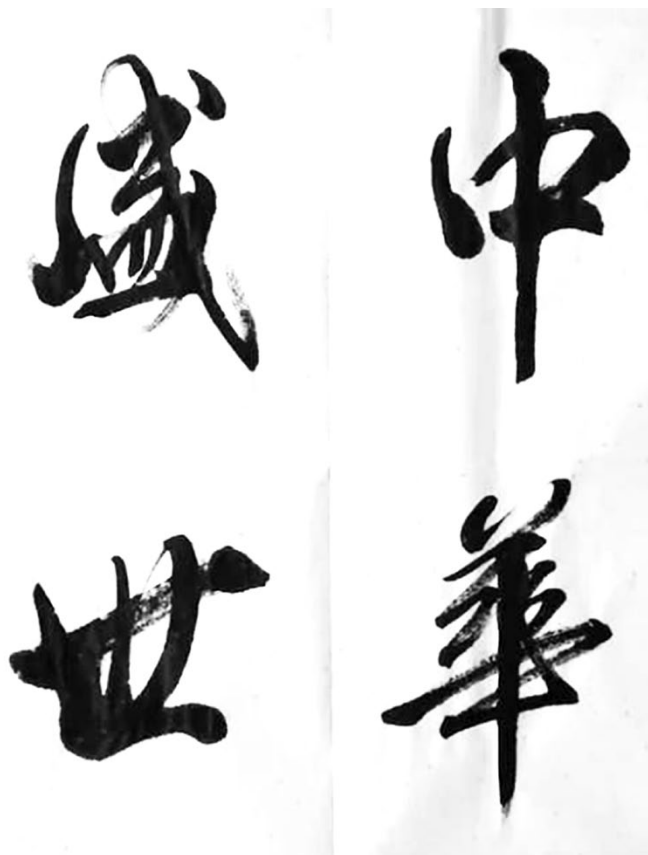 中華
盛世